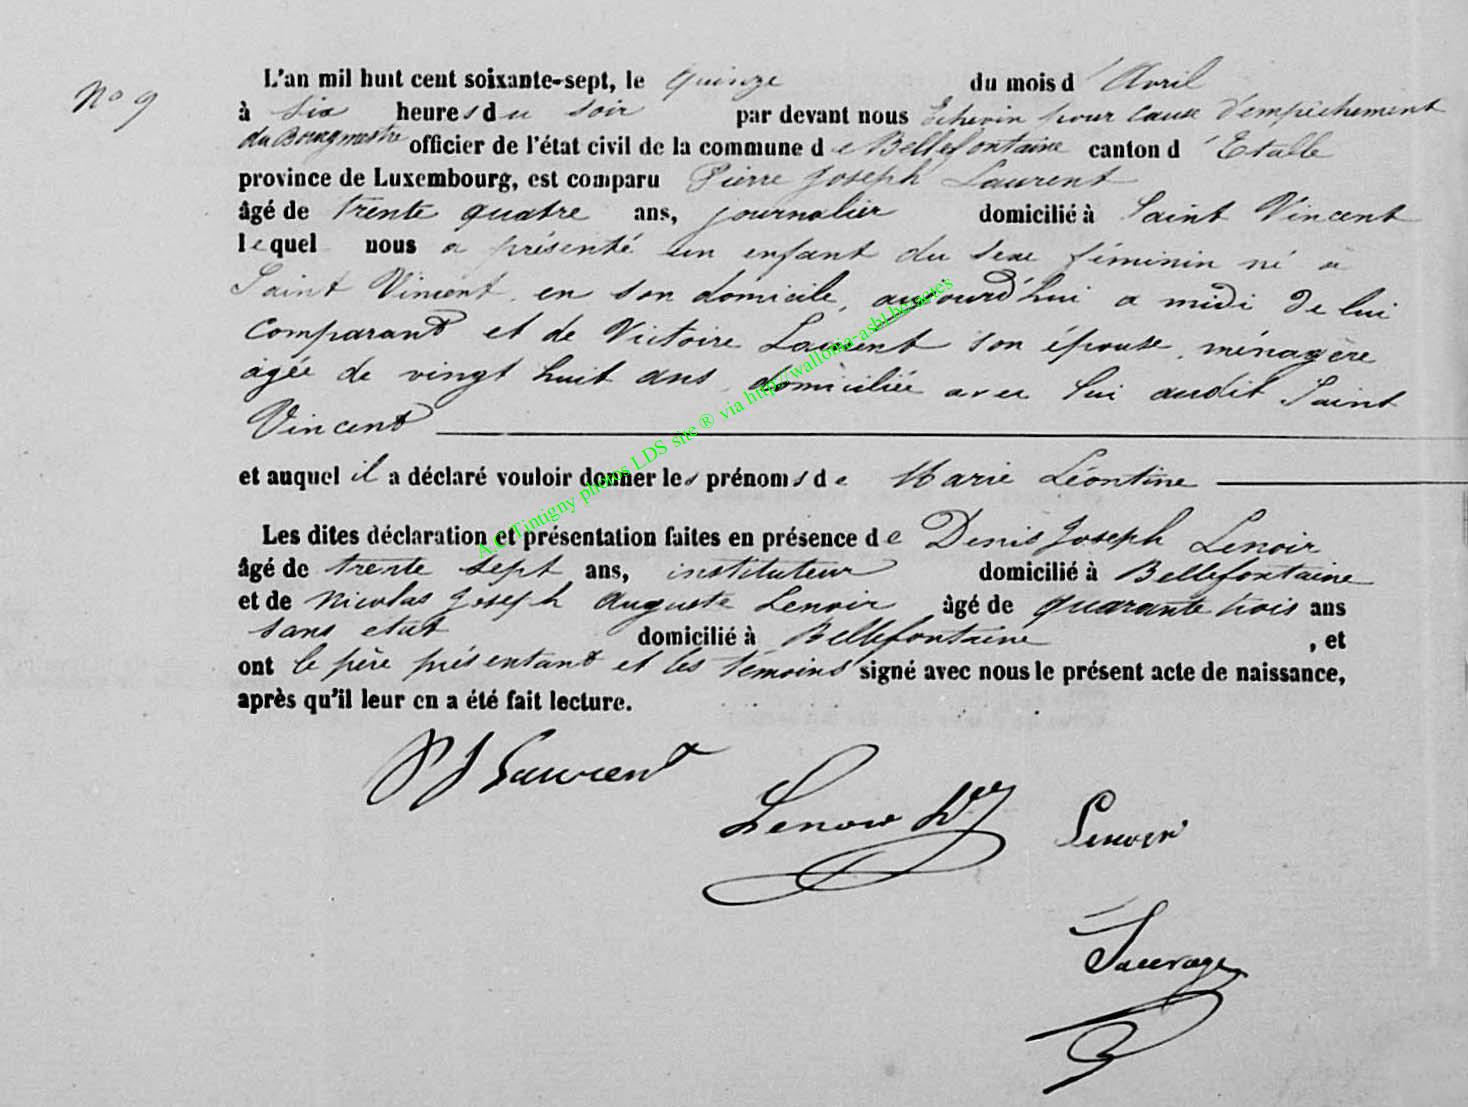 No 9
L'an mil huit cent soixante-sept, le quinze du mois d'Avril
à six heures du soir par devant nous Echevin pour cause d'empêchement
du Bourgmestre officier de l'état civil de la commune de Bellefontaine canton d'Etalle
province de Luxembourg, est comparu Pierre Joseph Laurent
âgé de trente quatre ans, journalier domicilié à Saint Vincent
lequel nous a présenté un enfant du sexe féminin né à
Saint Vincent, en son domicile, aujourd'hui a midi de lui
comparant et de Victoire Laurent son épouse, ménagère
agée de vingt huit ans, domiciliée avec lui audit Saint
Vincent
et auquel il a déclaré vouloir donner les prénoms de Marie Léontine
Les dites déclaration et présentation faites en présence de Denis Joseph Lenoir
âgé de trente sept ans, instituteur domicilié à Bellefontaine
et de Nicolas Joseph Auguste Lenoir âgé de quarante trois ans
sans etat domicilié à Bellefontaine , et
ont le père présentant et les témoins signé avec nous le présent acte de naissance,
après qu'il leur en a été fait lecture.
P J Laurent
Lenoir
Lenoir
Sauvage
A.C Tintigny photos LDS site ® via http://wallonia-asbl.be/actes